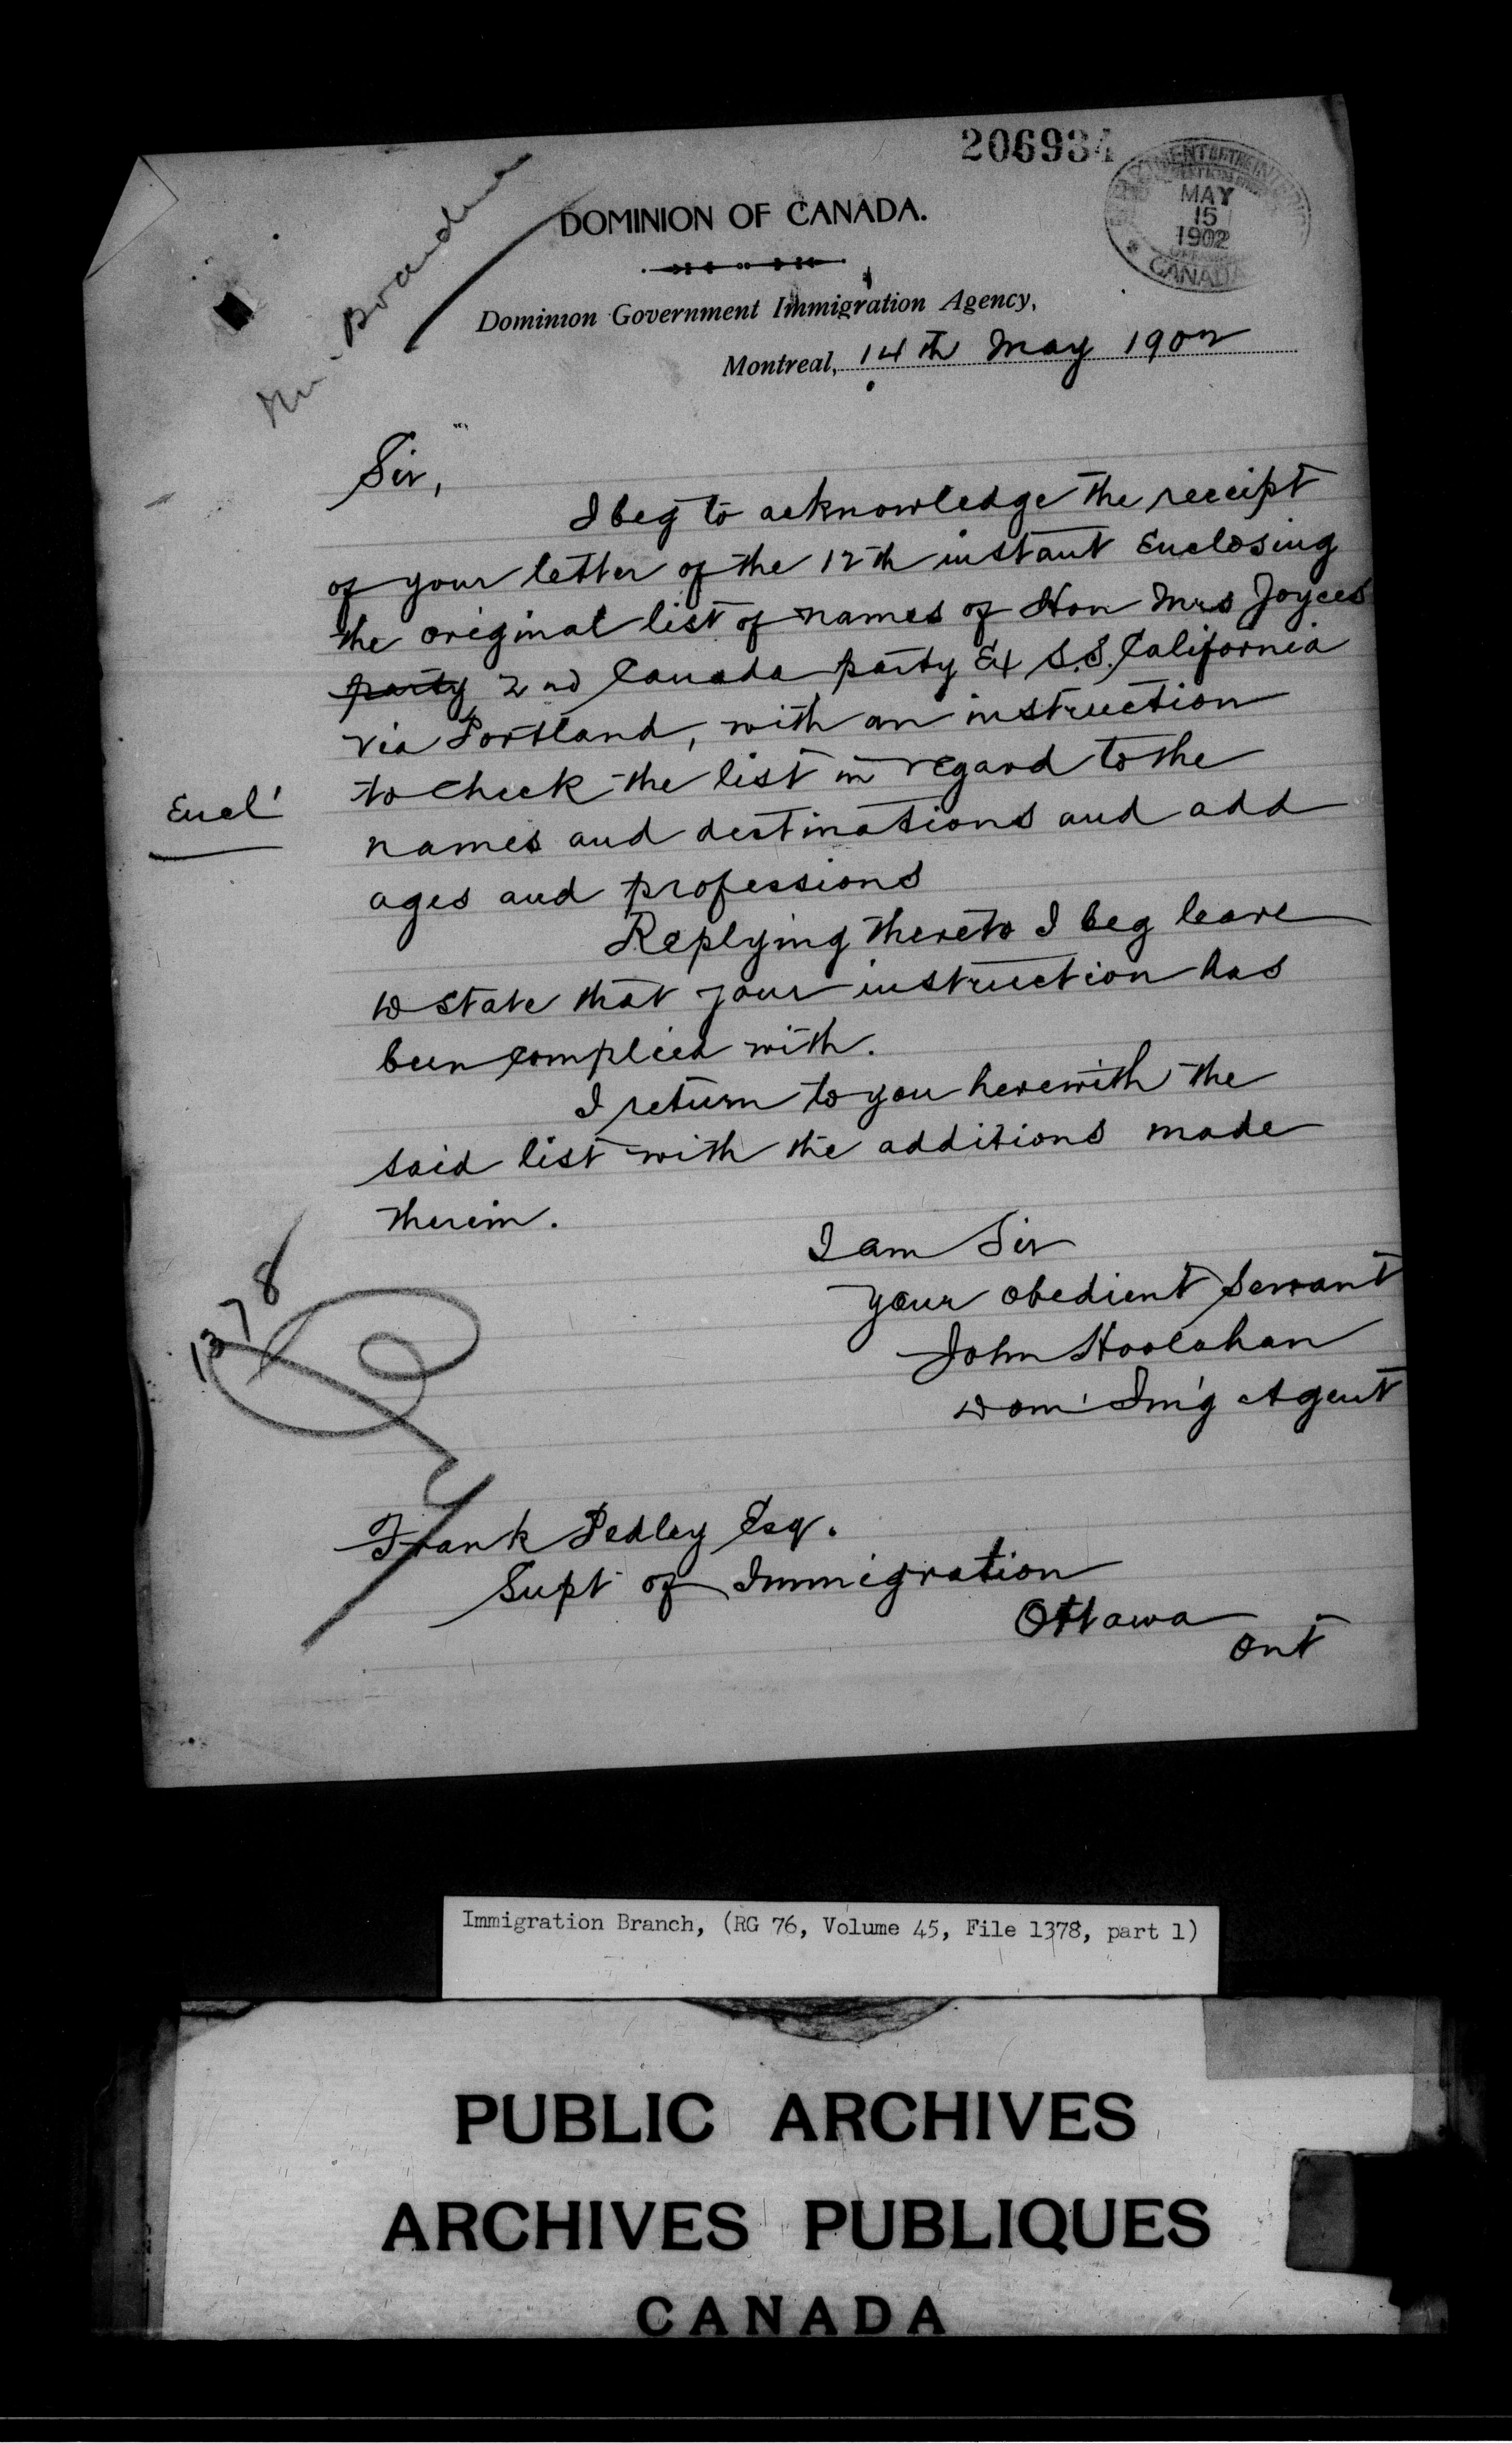 206934
DEPARTMENT OF THE INTERIOR
MAY
15
1902
CANADA
DOMINION OF CANADA.
Dominion Government Immigration Agency,
Montreal, 14th May 1902
Sir,
I beg to acknowledge the receipt
of your letter of the 12th instant Enclosing
the original list of names of Hon Mrs Joyces
party 2nd Canada party Ex S.S. California
via Portland, with an instruction
to check the list in regard to the
Encl'
names and destinations and add
ages and professions
Replying thereto I beg leave
to state that your instruction has
been complied with.
I return to you herewith the
said list with the additions made
therein.
I am Sir
your obedient Servant
John Hoolahan
Dom' Im'g Agent
1378
Frank Pedley Esq.
Supt of Immigration
Ottawa
Ont
Immigration Branch, (RG 76, Volume 45, File 1378, part 1)
PUBLIC ARCHIVES
ARCHIVES PUBLIQUES
CANADA